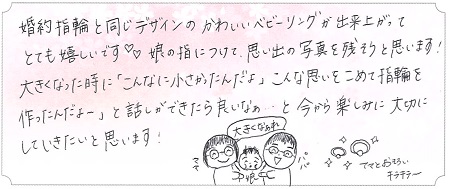 婚約指輪と同じデザインのかわいいベビーリングが出来上がって
とても嬉しいです♡♡ 娘の指につけて、思い出の写真を残そうと思います!
大きくなった時に「こんなに小さかったんだよ」こんな思いをこめて指輪を
作ったんだよー」と話しができたら良いなぁ…と今から楽しみに大切に
していきたいと思います!
大きくなぁれ
ママ
娘
パパ
ママとおそろい
キラキラ〜